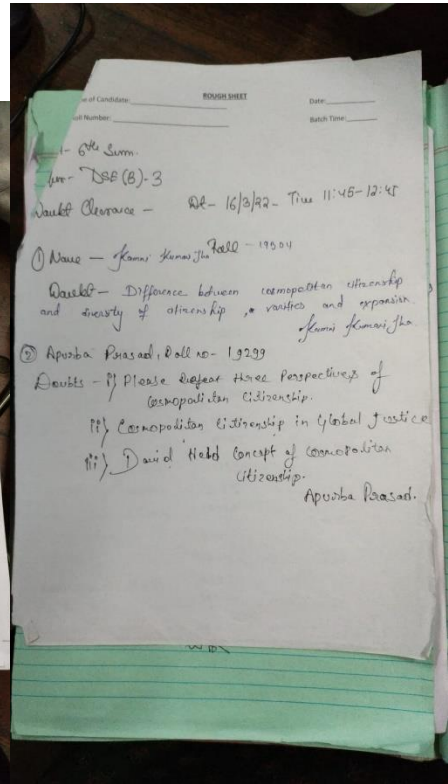 e of Candidate:
ROUGH SHEET
Date:
oll Number:
Batch Time:
6th Sem.
DSE (B)-3
Doubt Clearance - Dt- 16/3/22 - Time 11:45-12:45
① Name - Kumari Jha Roll - 19504
Doubt - Difference between cosmopolitan citizenship
and diversity of citizenship, varities and expansion
Kumari Jha
② Apurba Prasad, Roll no- 19299
Doubts - i) Please Repeat three Perspectives of
Cosmopolitan Citizenship.
ii) Cosmopolitan Citizenship in Global Justice
iii) David Held Concept of Cosmopolitan
Citizenship.
Apurba Prasad.